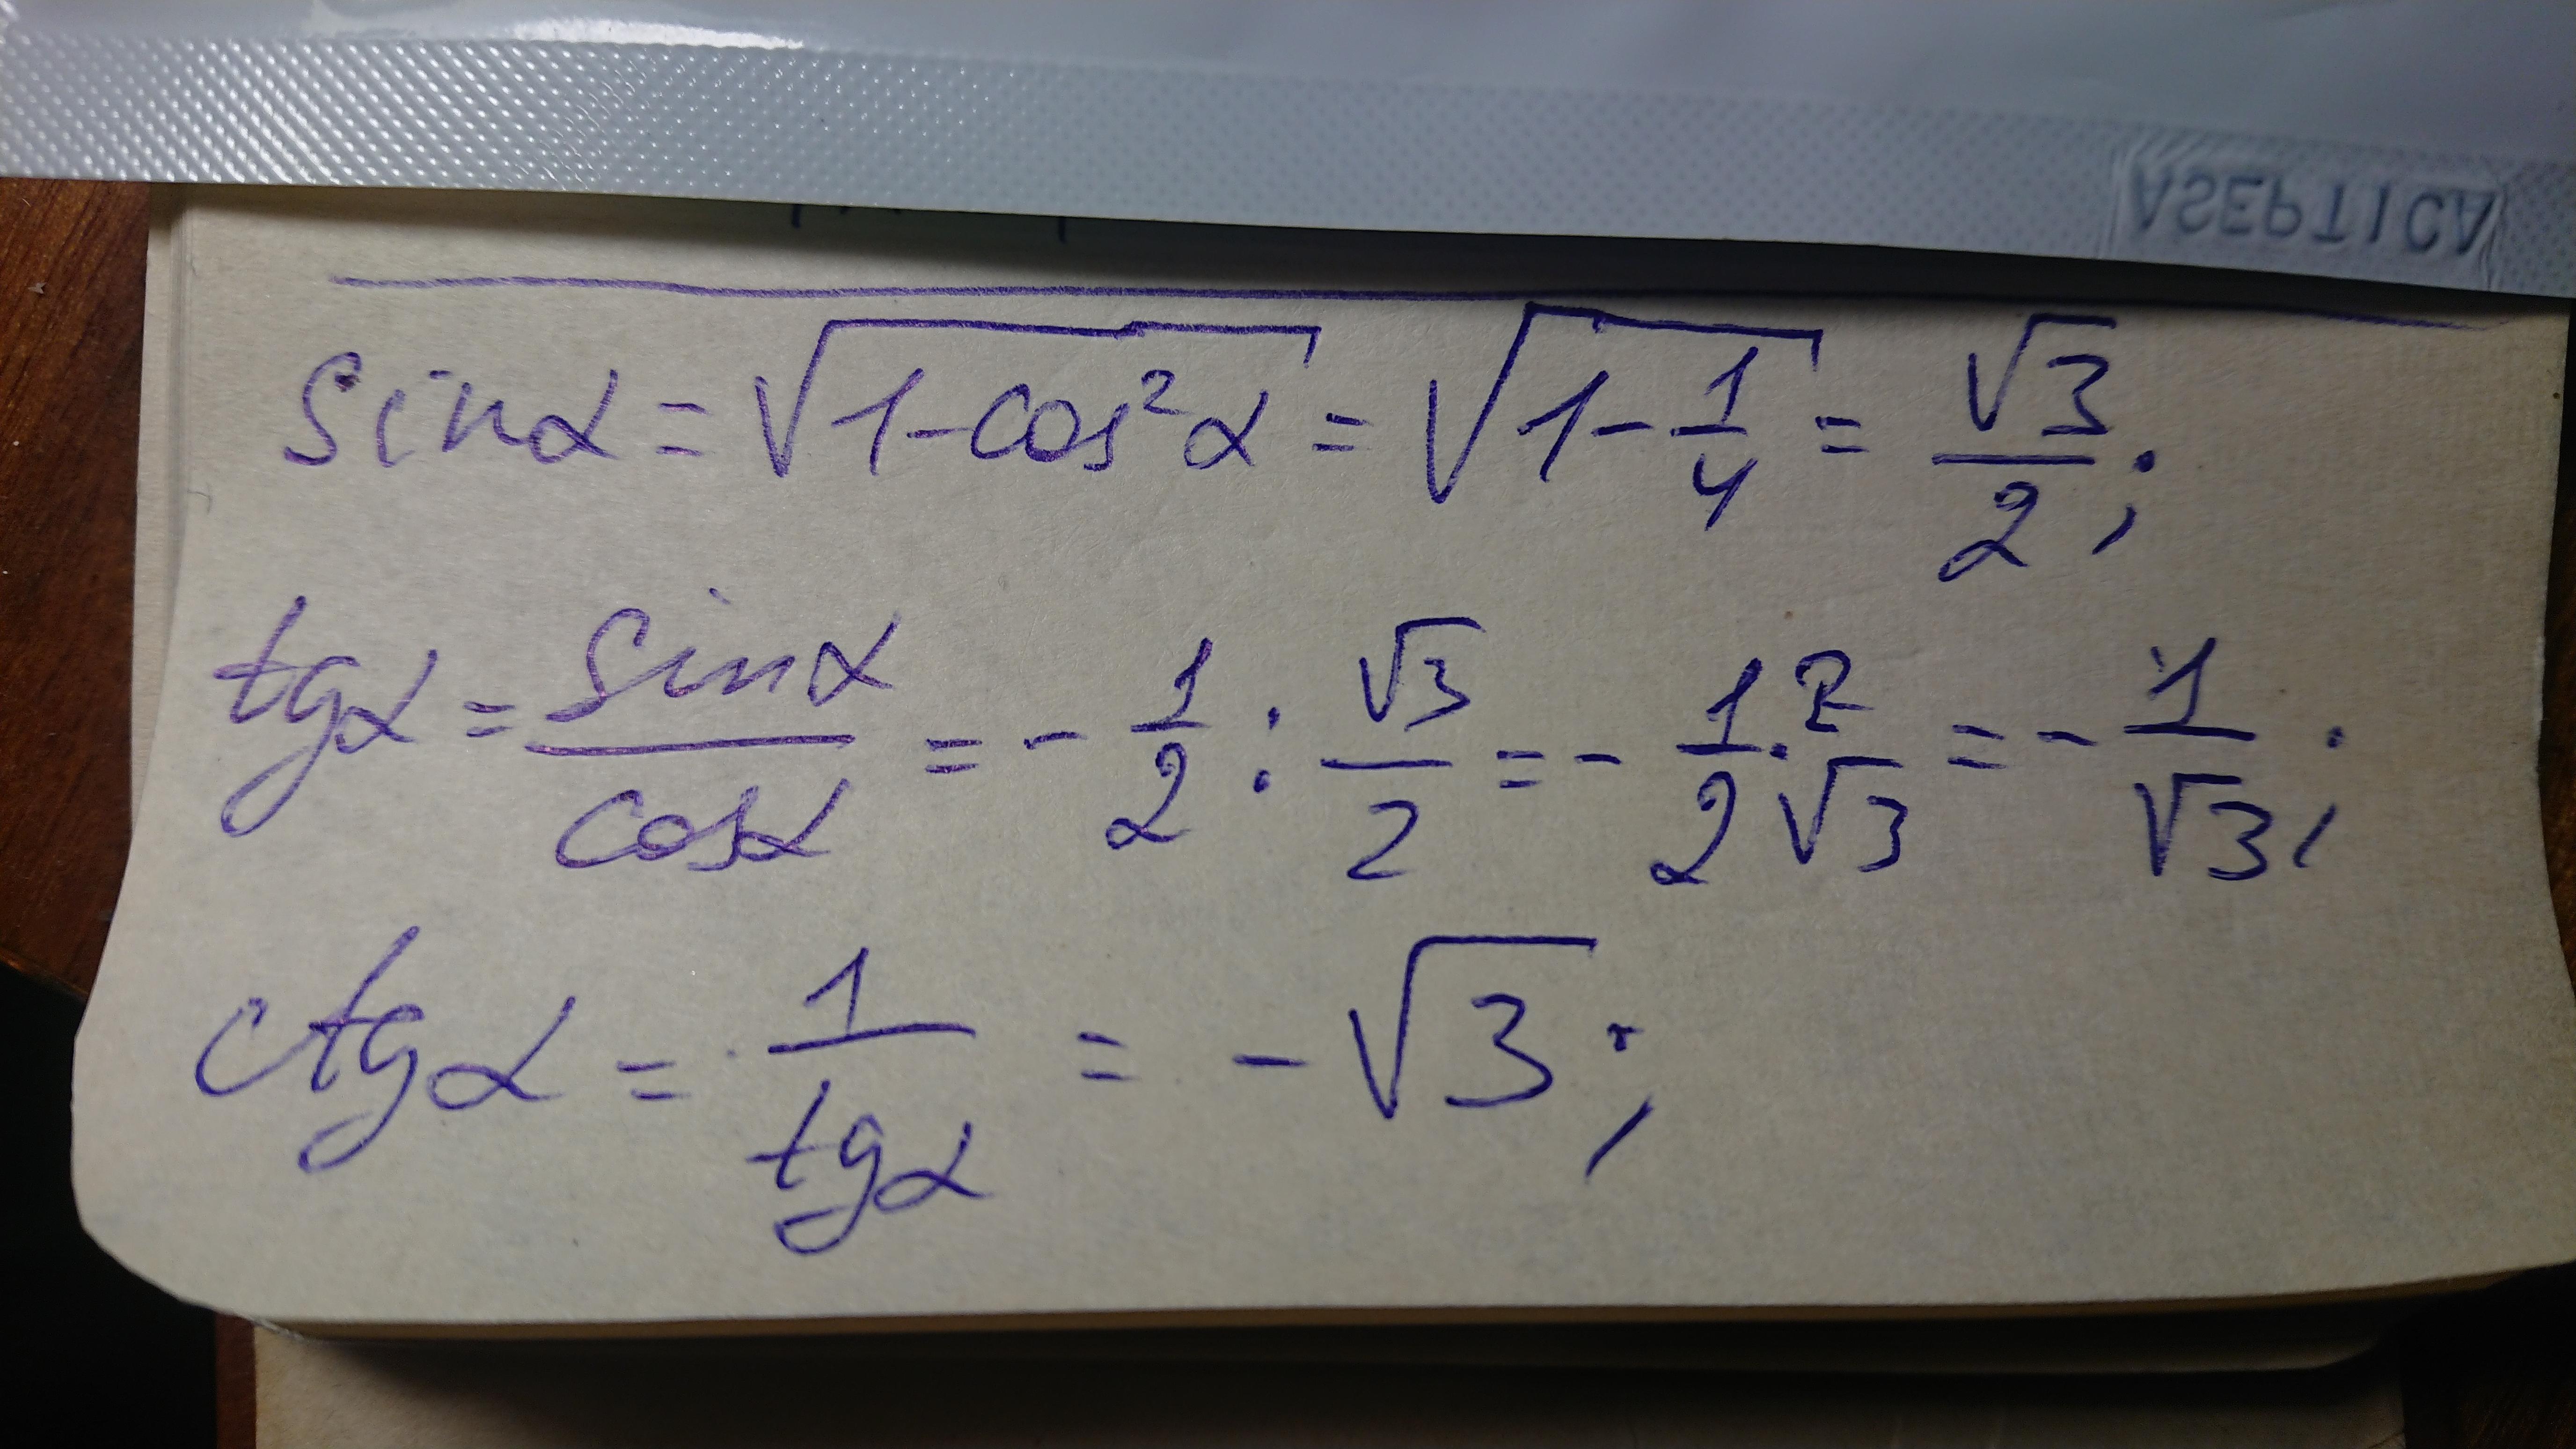 ASEPTICA
sinα = √(1-cos²α) = √(1-1/4) = √3/2;
tgα = sinα/cosα = - 1/2 : √3/2 = - 1/2 · 2/√3 = - 1/√3;
ctgα = 1/tgα = - √3;